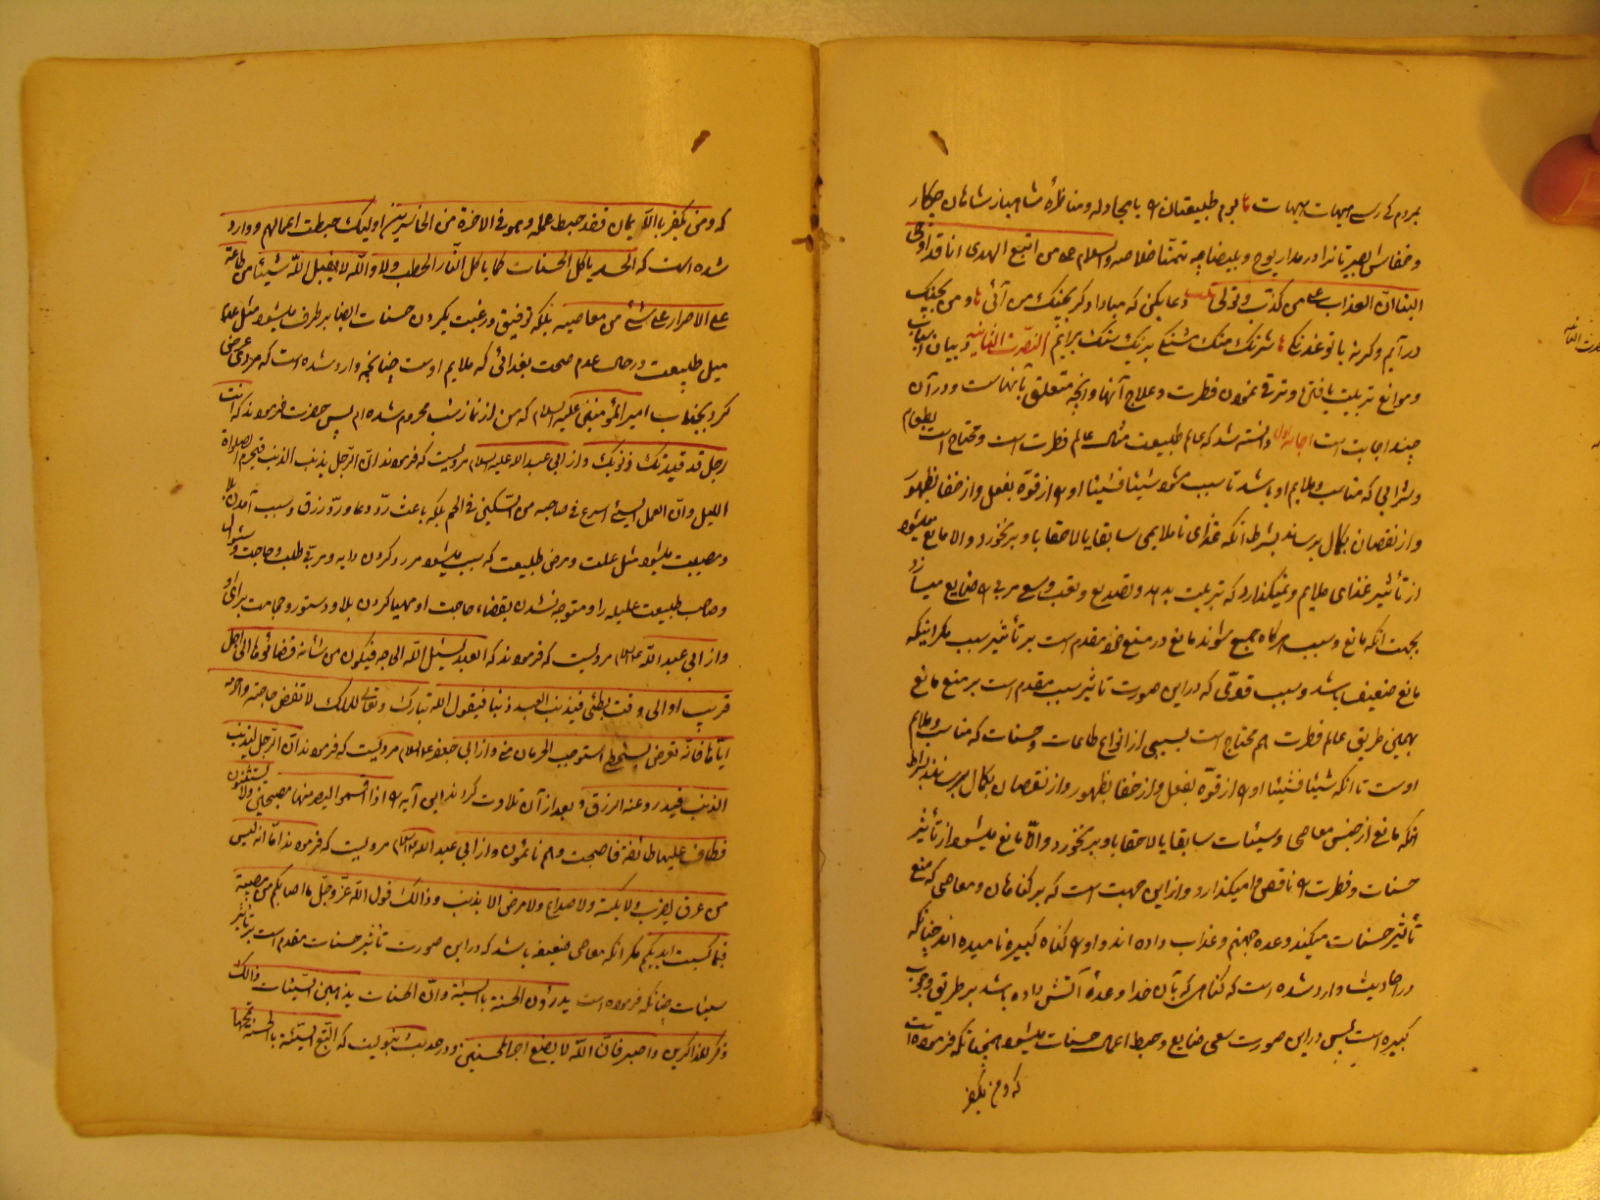 بمردم کرسی هیهات هیهات ما بوم طبیعتان را با مجادله و مناظرهٔ شاهباز شاهان چکار
و خفاش بصیرتانرا در مدار یوح و بیضا چه تمنّا خلاصه والسلام علی من اتبع الهدی انا قد اوحی
الینا انّ العذاب علی من کذّب و تولی دعا یکن که مبادا دگر بجنک من آئی ها و من بجنک
در آیم وگرنه با تو غدنک ها شرنک النصرت الثانیه در بیان اسباب
و موانع تربیت یافتن و ترقی نمودن فطرت و علاج آنها و آنچه متعلق بآنهاست و در آن
چند اجابت است اجابه اول دانسته شد که عالم طبیعت مثال عالم فطرت است و محتاج است بطعام
و شرابی که مناسب و ملایم او باشد تا سبب شود شیئا فشیئا او را از قوّه بفعل و از خفا بظهور
و از نقصان بکمال برساند بشرط آنکه غذای ناملایمی سابقا یا لاحقا باو بر نخورد و الا مانع میشود
از تأثیر غذای ملایم و نمیگذارد که تربیت بدهد و تصدیع و تعب و سعی مربی را ضایع میسازد
بجهت آنکه مانع و سبب هرگاه جمع شوند مانع در منع خود مقدم است بر تأثیر سبب مگر اینکه
مانع ضعیف باشد و سبب قوی که در این صورت تأثیر سبب مقدم است بر منع مانع
بهمین طریق عالم فطرت هم محتاج است بسببی از انواع طاعات و حسنات که مناسب و ملایم
اوست تا آنکه شیئا فشیئا او را از قوّه بفعل و از خفا بظهور و از نقصان بکمال برساند بشرط
آنکه مانع از جنس معاصی و سیئات سابقا یا لاحقا باو بر نخورد و الّا مانع میشود از تأثیر
حسنات و فطرت را ناقص وا میگذارد و از این جهت است که بر گناهان و معاصی که منع
تأثیر حسنات میکند وعده جهنم و عذاب داده اند و او را گناه کبیره نامیده اند چنانکه
در احادیث وارد شده است که گناهی که بآن خدا وعدهٔ آتش داده باشد بر طریق وجوب
کبیره است پس در این صورت سعی ضایع و حبط اعمال حسنات میشود همچنانکه فرموده است
که و من یکفر
که و من یکفر باللّه یمان فقد حبط عمله و هو فی الاخرة من الخاسرین اولیک حبطت اعمالهم و وارد
شده است که الحسد یاکل الحسنات کما یاکل النّار الحطب و لا واللّه لا یقبل اللّه شیئا من طاعة
علی الاصرار علی شیئ من معاصیه بلکه توفیق و رغبت بکردن حسنات ایضا برطرف میشود مثل عدم
میل طبیعت در حالت عدم صحت بغدائی که ملایم اوست چنانچه وارد شده است که مردی عرض
کرد بجناب امیر المؤمنین علیه السلام که من از نماز شب محروم شده ام پس حضرت فرمودند که انت
رجل قد قیدتک ذنوبک و از ابی عبد الله علیه السلام مرویست که فرمودند انّ الرّجل یذنب الذنب فیحرم الصلوة
اللیل و انّ العمل السیئ اسرع فی صاحبه من السّکین فی اللحم بلکه باعث ردّ دعا و ردّ رزق و سبب آمدن بلا
و مصیبت میشود مثل علت و مرض طبیعت که سبب میشود مر رد کردن دایه و مربّی طلب و حاجت و سئوال
صاحب طبیعت علیله را و متوجه نشدن بقضاء حاجت او و مهیا کردن بلا و دستور و حجامت برای او
و از ابی عبد اللّه علیه السلام مرویست که فرمودند که العبد یسئل اللّه الحاجه فیکون من شانه قضائها الی اجل
قریب او الی وقت بطئی فیذنب العبد ذنبا فیقول اللّه تبارک و تعالی للملک لا تقض حاجته و احرمه
ایّاها فانّه تعرض لسخطی استوجب الحرمان منی و از ابی جعفر علیه السلام مرویست که فرمودند انّ الرّجل لیذنب
الذنب فیدرء عنه الرزق و بعد از آن تلاوت کردند این آیه را اذ اقسموا لیصرمنها مصبحین و لا یستثنون
فطاف علیها طائفة فاصبحت و هم نائمون و از ابی عبد اللّه علیه السلام مرویست که فرمودند اما انه لیس
من عرق یضرب و لا نکبة و لا صداع و لا مرض الا بذنب و ذالک قول اللّه عزّ و جلّ ما اصابکم من مصیبة
فبما کسبت ایدیکم مگر آنکه معاصی ضعیف باشد که در این صورت تأثیر حسنات مقدم است بر تأثیر
سیئات چنانکه فرموده است یدرؤن الحسنة بالسیئة و انّ الحسنات یذهبن السّیئات ذالک
ذکر للذاکرین و اصبر فانّ اللّه لا یضیع اجر المحسنین و در حدیث نبویست که اتّبع السیّئة بالحسنة تمحها